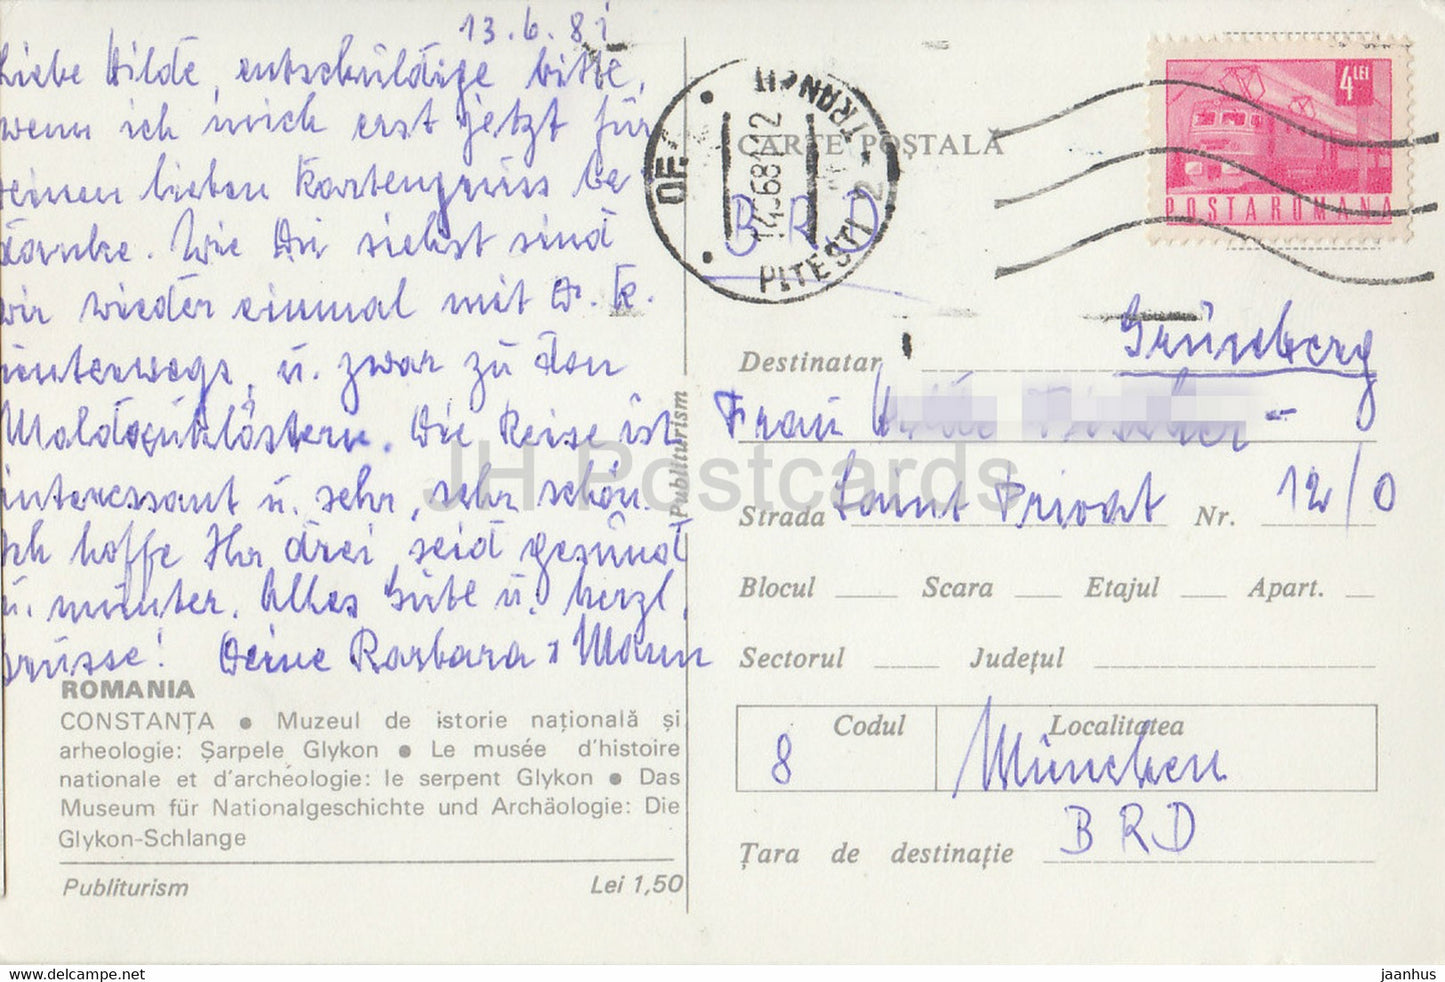 13.6.81
Liebe Hilde, entschuldige bitte,
wenn ich mich erst jetzt für
deinen lieben Kartengruss be
danke. Wie Du siehst sind
wir wieder einmal mit Dr. K.
unterwegs, u. zwar zu den
Moldauklöstern. Die Reise ist
interessant u. sehr, sehr schön.
Ich hoffe Ihr drei seid gesund
u. munter. Alles Gute u. herzl.
Grüsse! Deine Barbara + Mann
ROMANIA
CONSTANȚA • Muzeul de istorie națională și
arheologie: Șarpele Glykon • Le musée d'histoire
nationale et d'archéologie: le serpent Glykon • Das
Museum für Nationalgeschichte und Archäologie: Die
Glykon-Schlange
Publiturism Lei 1,50
Publiturism
CARTE POȘTALĂ
BRD
PITESTI 2
TRANZIT
4 LEI
POSTA ROMANA
Destinatar
Frau
Strada Sankt Privat Nr. 12/0
Blocul Scara Etajul Apart.
Sectorul Județul
Codul Localitatea
8 München
Țara de destinație BRD
JH Postcards
https://www.delcampe.net jaanhus